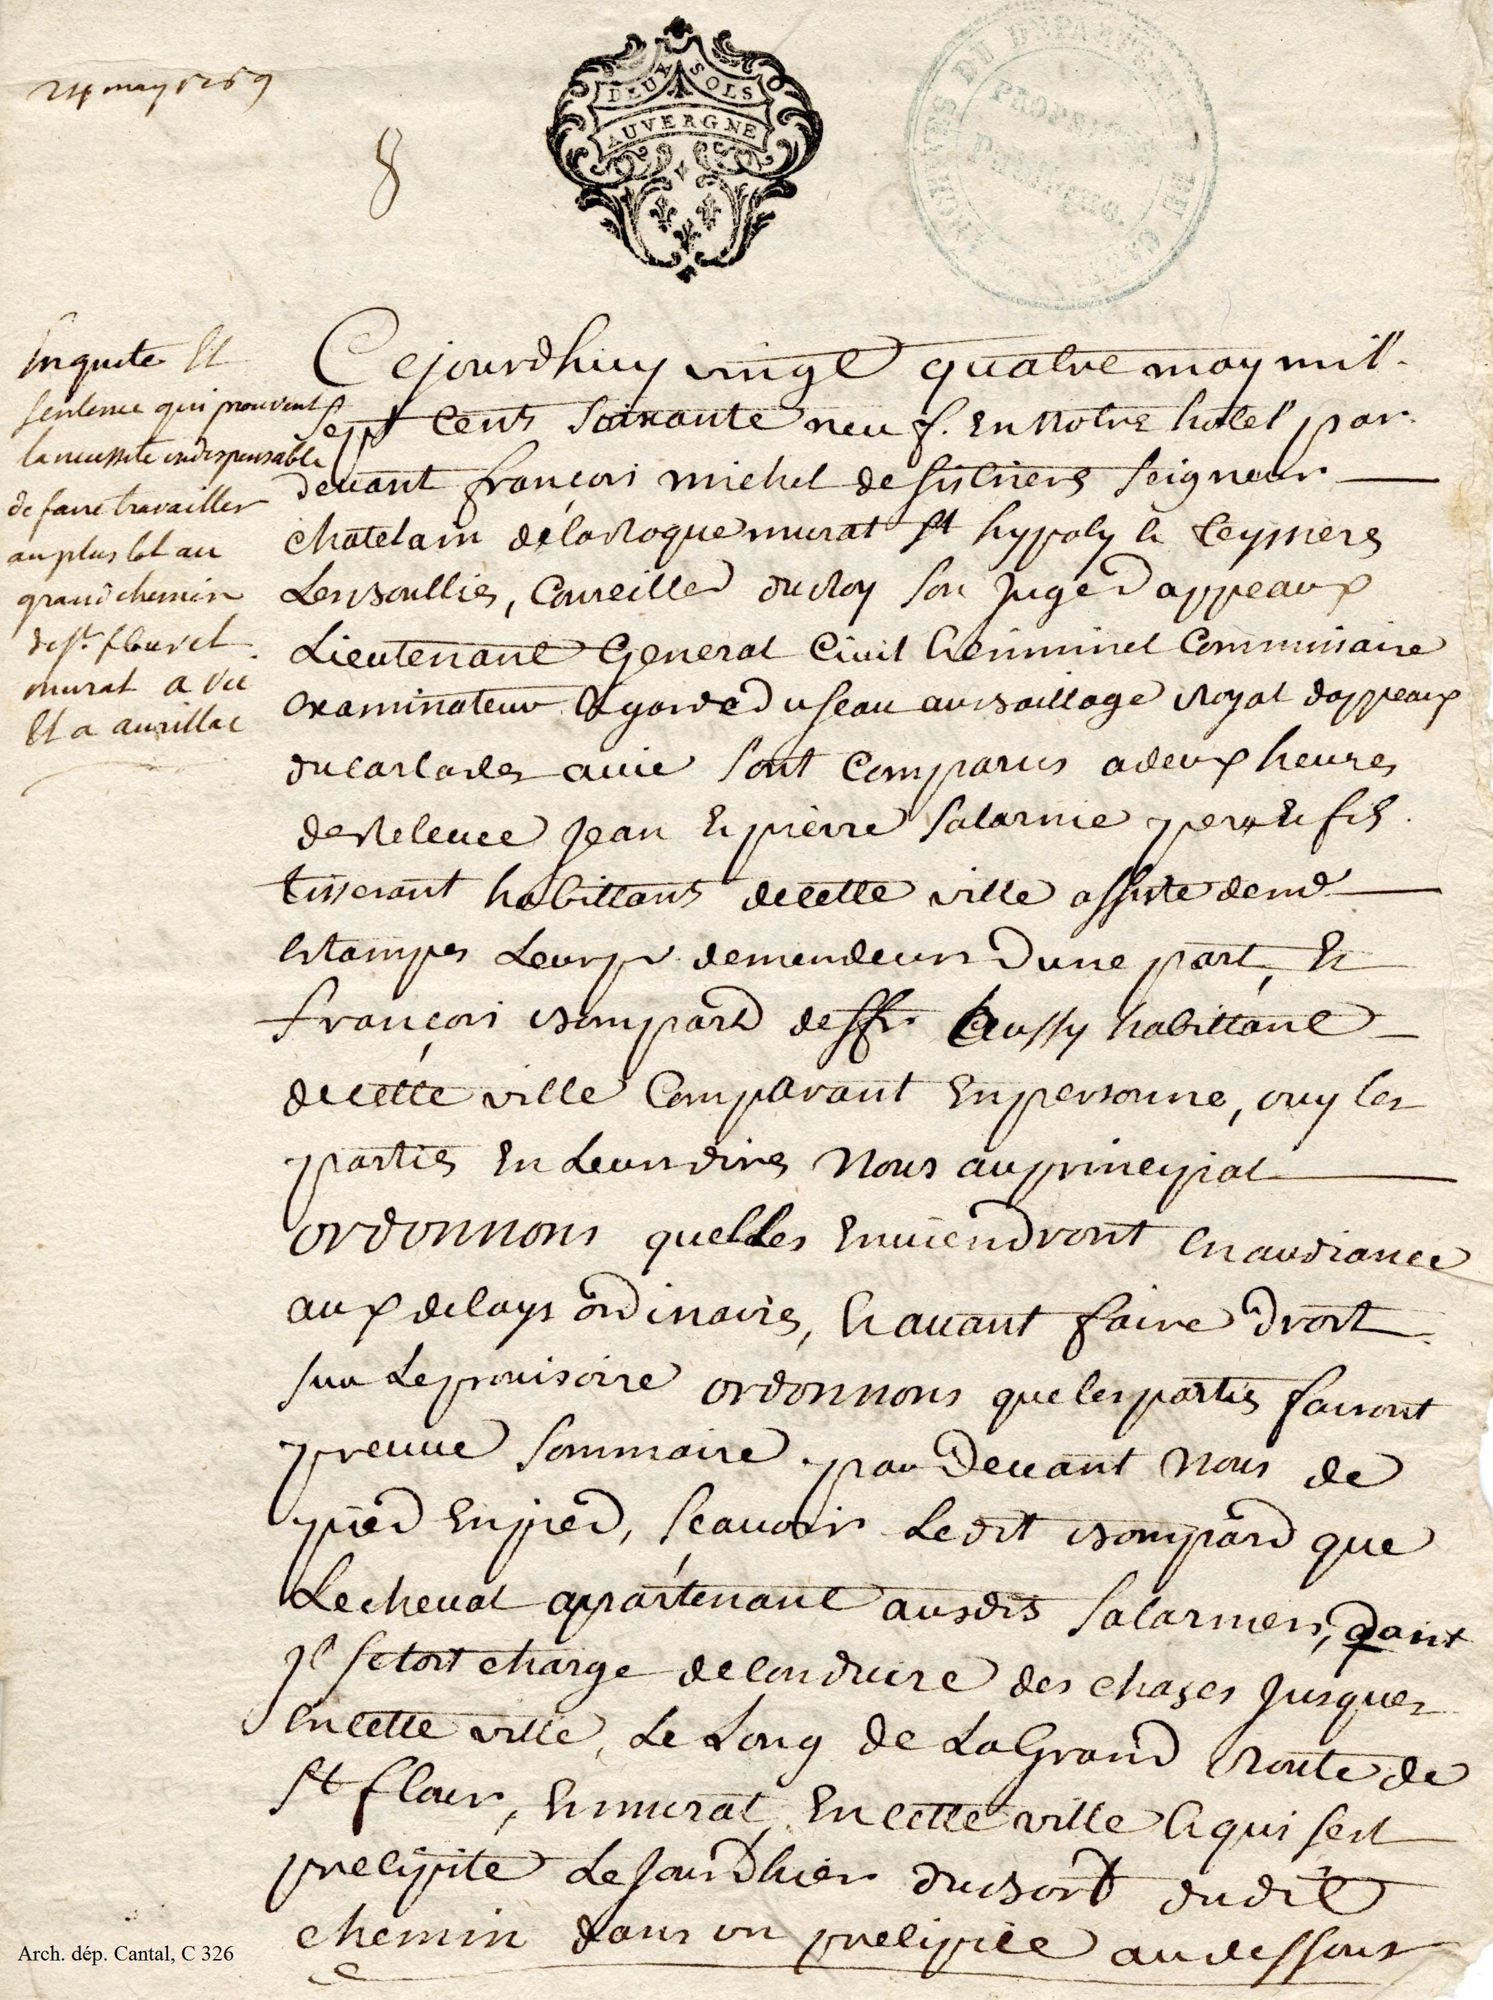 24 may 1769
8
DEUX SOLS
AUVERGNE
ARCHIVES DU DEPARTEMENT DU
PROPRIETE
PUBLIQUE
Enquete Et
sentence qui prouvent
la necessite indispensable
de faire travailler
au plus tot au
grand chemin
de st. flour et
murat a vic
Et a aurillac
Cejourdhuy vingt quatre may mil
sept cens soixante neuf. En notre hotel par
devant françois michel de sistriers seigneur
chatelain de la Roque murat st hypoly le teyssiere
Les boullies, Conseiller du Roy son Juge d appeaux
Lieutenant General Civil Criminel Commissaire
examinateur & garde du seau au bailliage Royal dappeaux
du carlades a vic sont comparus a deux heures
de Relevée Jean E pierre salarnie pere E fis
tisserant habittans de cette ville assiste de me
Estampes Leur pr. demendeurs d une part, E
françois bompard deffr. aussy habittant
de cette ville Comparant En personne, ouy les
parties En Leurs dires Nous au principal
ordonnons quelles Enviendront En audiance
aux delays ordinaires, E avant faire droit
sur Le provisoire ordonnons que les parties fairont
preuve sommaire par Devant Nous de
pied En pied, scavoir Ledit bompard que
Le cheval apartenant ausdis salarnies, dont
Jl setoit charge de conduire des chazes Jusques
En cette ville, Le Long de La Grand Route de
st flour, E murat, En cette ville E qui sest
precipité Le Jour d hier du bord dudit
chemin dans un precipice au dessous
Arch. dép. Cantal, C 326